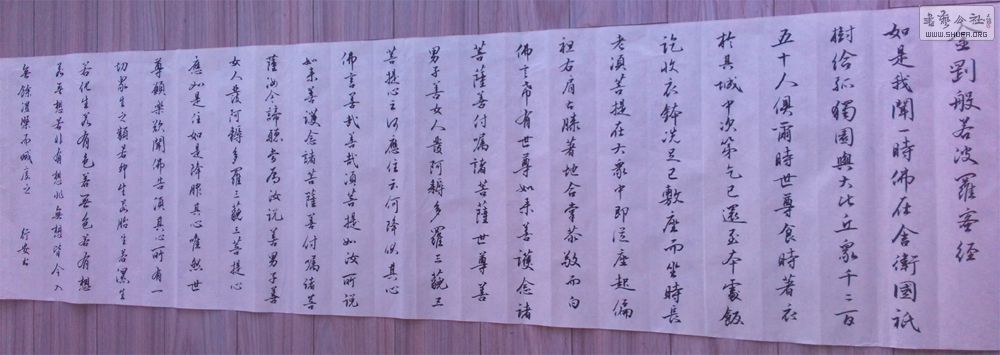 金剛般若波羅蜜经
如是我聞一時佛在舍衛國祇
樹给孤獨園與大比丘衆千二百
五十人俱爾時世尊食時著衣
於其城中次第乞已還至本處飯
訖收衣鉢洗足已敷座而坐時長
老須菩提在大衆中即從座起偏
袒右肩右膝著地合掌恭敬而白
佛言希有世尊如来善護念诸
菩薩善付嘱诸菩薩世尊善
男子善女人發阿耨多羅三藐三
菩提心云何應住云何降伏其心
佛言善哉善哉須菩提如汝所説
如来善護念諸菩薩善付嘱诸菩
薩汝今諦聽當为汝说善男子善
女人發阿耨多羅三藐三菩提心
應如是住如是降伏其心唯然世
尊願樂欲聞佛告須
其心所有一
切衆生之類若卵生若胎生若濕生
若化生若有色若无色若有想
若无想若非有想非無想皆令入
無餘涅槃而滅度之
行安书
書藝公社
WWW.SHUFA.ORG